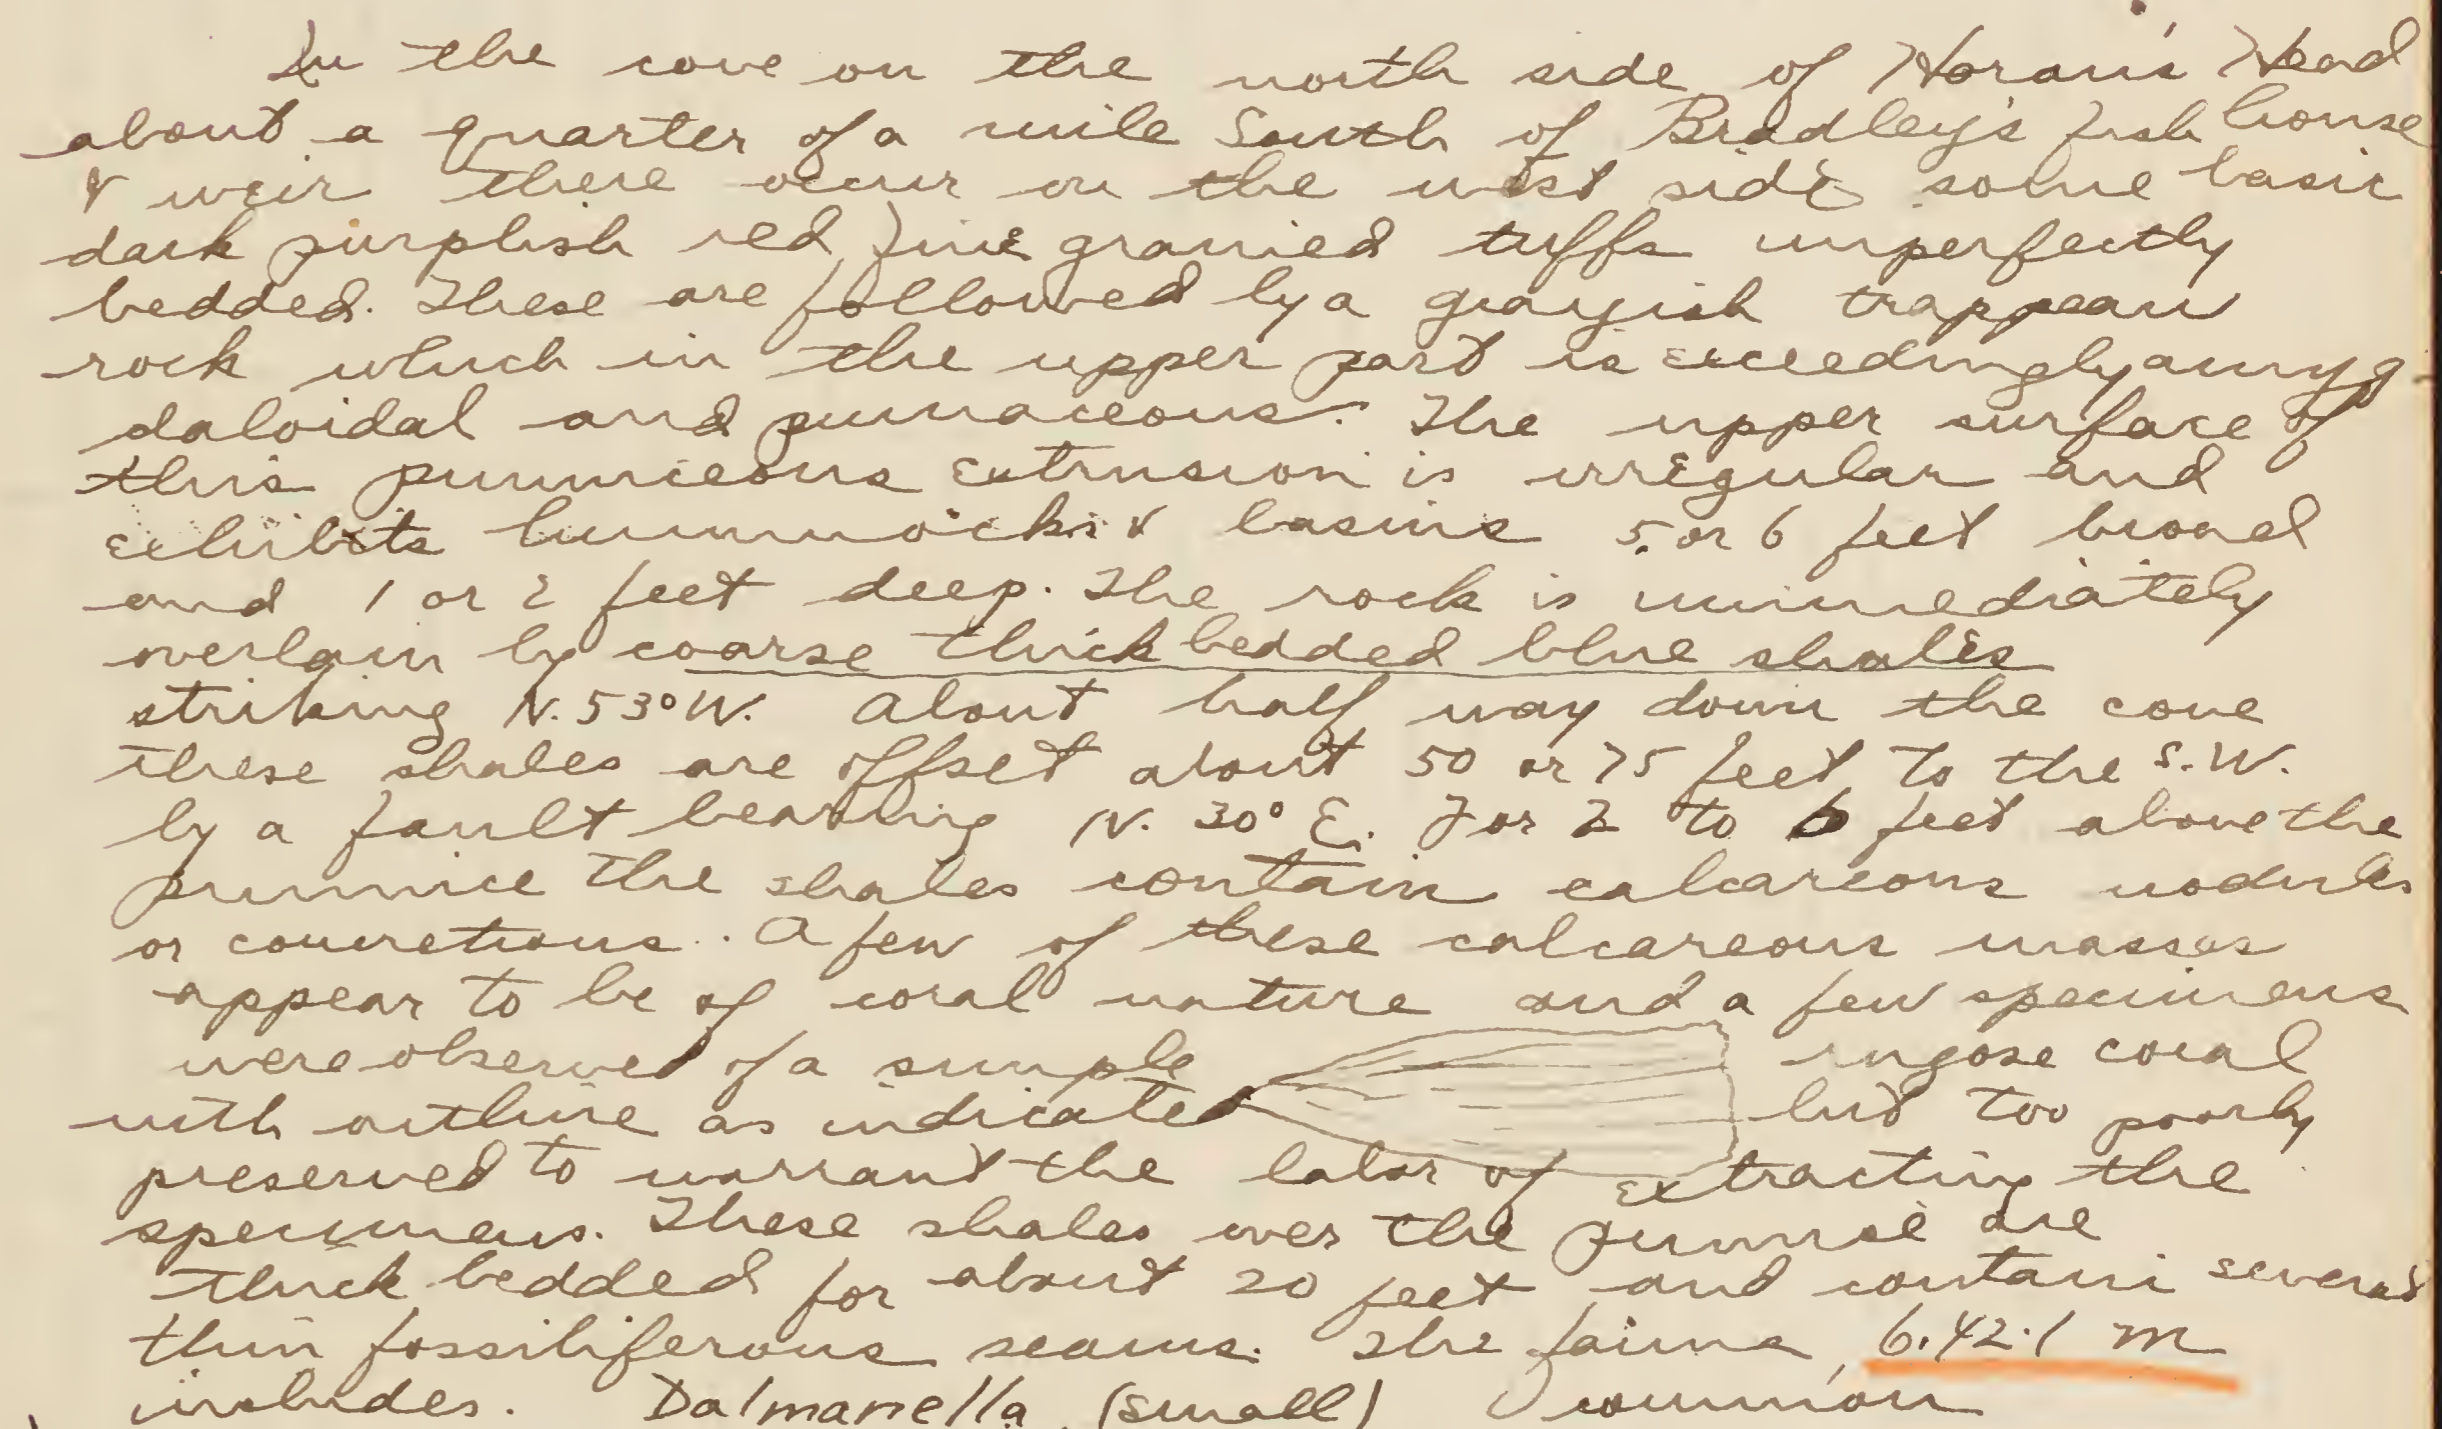 In the cove on the north side of Horan's Head
about a quarter of a mile South of Bradley's fish house
& weir there occur on the west side some basic
dark purplish red fine grained tuffs imperfectly
bedded. These are followed by a grayish trappean
rock which in the upper part is exceedingly amyg-
daloidal and pumaceous. The upper surface of
this pumniceous extrusion is irregular and
exhibits hummocks & basins 5 or 6 feet broad
and 1 or 2 feet deep. The rock is immediately
overlain by coarse thick bedded blue shales
striking N. 53° W. About half way down the cove
these shales are offset about 50 or 75 feet to the S.W.
by a fault bearing N. 30° E. For 2 to 6 feet above the
pumnice the shales contain calcareous nodules
or concretions. A few of these calcareous masses
appear to be of coral nature and a few specimens
were observed of a simple rugose coral
with outline as indicated but too poorly
preserved to warrant the labor of extracting the
specimens. These shales over the pumnice are
thick bedded for about 20 feet and contain several
thin fossiliferous seams. The fauna 6.42.1 m
includes. Dalmanella (small) common